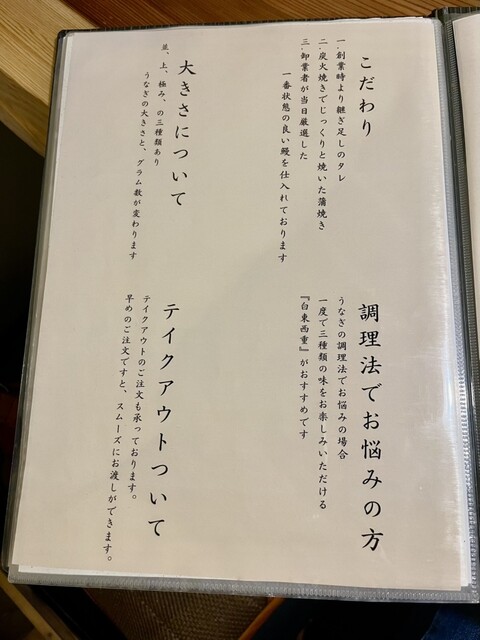 こだわり
一.創業時より継ぎ足しのタレ
二.炭火焼きでじっくりと焼いた蒲焼き
三.卸業者が当日厳選した
一番状態の良い鰻を仕入れております
大きさについて
並、上、極み、の三種類あり
うなぎの大きさと、グラム数が変わります
調理法でお悩みの方
うなぎの調理法でお悩みの場合
一度で三種類の味をお楽しみいただける
『白東西重』がおすすめです
テイクアウトついて
テイクアウトのご注文も承っております。
早めのご注文ですと、スムーズにお渡しができます。